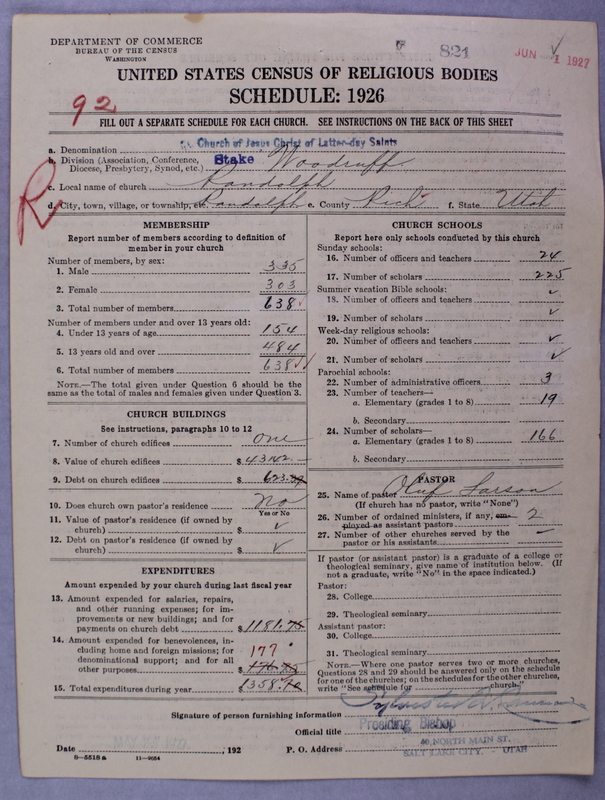 DEPARTMENT OF COMMERCE
BUREAU OF THE CENSUS
WASHINGTON
821
JUN 1 1927
UNITED STATES CENSUS OF RELIGIOUS BODIES
SCHEDULE: 1926
92
FILL OUT A SEPARATE SCHEDULE FOR EACH CHURCH. SEE INSTRUCTIONS ON THE BACK OF THIS SHEET
R
a. Denomination Church of Jesus Christ of Latter-day Saints
b. Division (Association, Conference, Diocese, Presbytery, Synod, etc.) Stake Woodruff
c. Local name of church Randolph
d. City, town, village, or township, etc. Randolph e. County Rich f. State Utah
MEMBERSHIP
Report number of members according to definition of
member in your church
Number of members, by sex:
1. Male 335
2. Female 303
3. Total number of members 638
Number of members under and over 13 years old:
4. Under 13 years of age 154
5. 13 years old and over 484
6. Total number of members 638
NOTE.—The total given under Question 6 should be
same as the total of males and females given under Question 3.
CHURCH BUILDINGS
See instructions, paragraphs 10 to 12
7. Number of church edifices One
8. Value of church edifices $ 43142.—
9. Debt on church edifices $ 623.
10. Does church own pastor's residence No
Yes or No
11. Value of pastor's residence (if owned by
church) $ ✓
12. Debt on pastor's residence (if owned by
church) $ ✓
EXPENDITURES
Amount expended by your church during last fiscal year
13. Amount expended for salaries, repairs,
and other running expenses; for im-
provements or new buildings; and for
payments on church debt $ 1181.75
14. Amount expended for benevolences, in-
cluding home and foreign missions; for
denominational support; and for all
other purposes 177 $ 176.95
15. Total expenditures during year $ 1358.70
CHURCH SCHOOLS
Report here only schools conducted by this church
Sunday schools:
16. Number of officers and teachers 24
17. Number of scholars 225
Summer vacation Bible schools:
18. Number of officers and teachers ✓
19. Number of scholars ✓
Week-day religious schools:
20. Number of officers and teachers ✓
21. Number of scholars ✓
Parochial schools:
22. Number of administrative officers 3
23. Number of teachers—
a. Elementary (grades 1 to 8) 19
b. Secondary
24. Number of scholars—
a. Elementary (grades 1 to 8) 166
b. Secondary
PASTOR
25. Name of pastor Oluf Larson
(If church has no pastor, write "None")
26. Number of ordained ministers, if any, em-
ployed as assistant pastors 2
27. Number of other churches served by the
pastor or his assistants —
If pastor (or assistant pastor) is a graduate of a college or
theological seminary, give name of institution below. (If
not a graduate, write "No" in the space indicated.)
Pastor:
28. College
29. Theological seminary
Assistant pastor:
30. College
31. Theological seminary
NOTE.—Where one pastor serves two or more churches,
Questions 28 and 29 should be answered only on the schedule
for one of the churches; on the schedules for the other churches,
write "See schedule for church."
Signature of person furnishing information Sylvester Q. Cannon
Official title Presiding Bishop
Date , 192 P. O. Address 40 NORTH MAIN ST.
SALT LAKE CITY, - UTAH
8—5518a 11—9054